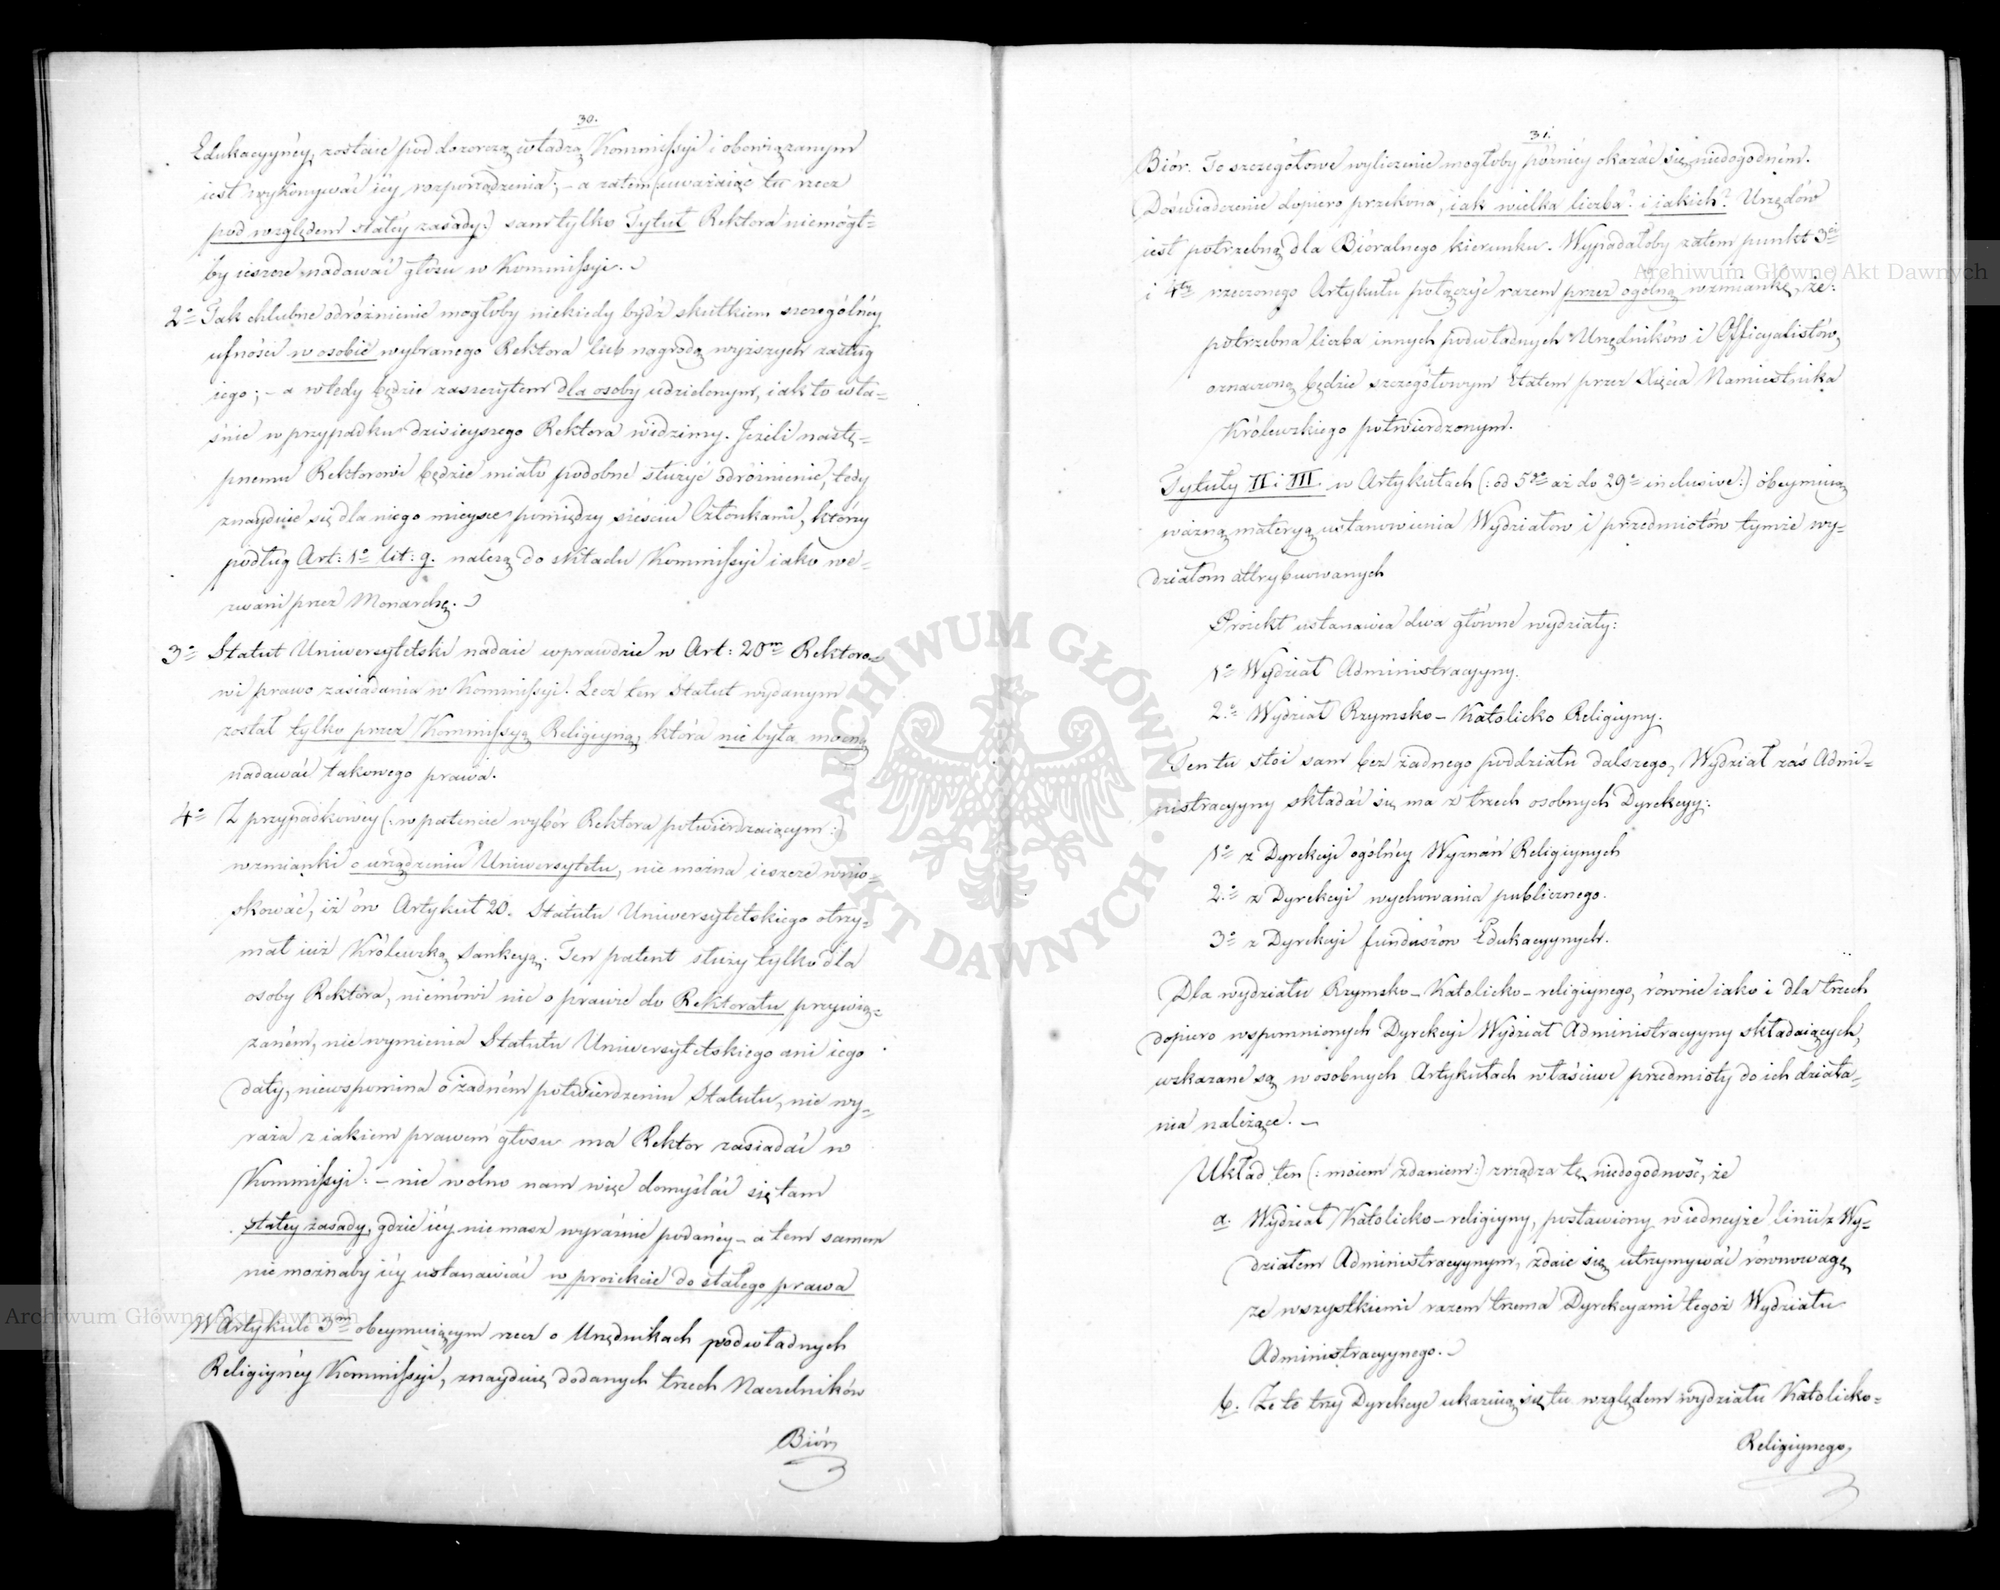 30.
Edukacyynéy, zostaie pod dozorczą władzą Kommissyi i obowiązanym
iest wykonywać iéy rozporządzenia; – a zatem (uważaiąc tu rzecz
pod względem stałéy zasady:) sam tylko Tytuł Rektora niemógł-
by ieszcze nadawać głosu w Kommissyi.
2o Tak chlubne odróżnienie mogłoby niekiedy bydź skutkiem szczególnéy
ufności w osobie wybranego Rektora lub nagrodą wyższych zasług
iego; – a wtedy będzie zaszczytem dla osoby udzielonym, iak to wła-
śnie w przypadku dzisieyszego Rektora widzimy. Jeżeli nastę-
pnemu Rektorowi będzie miało podobne służyć odróżnienie, tedy
znayduie się dla niego mieysce pomiędzy sześciu Członkami, którzy
podług Art: 1o lit: g. należą do składu Kommissyi iako we-
zwani przez Monarchę.
3o Statut Uniwersytetski nadaie wprawdzie w Art: 20m Rektoro-
wi prawo zasiadania w Kommissyi. Lecz ten Statut wydanym
został tylko przez Kommissyą Religiyną, która nie była mocną
nadawać takowego prawa.
4o Z przypadkowéy (: w patencie wybór Rektora potwierdzaiącym :)
wzmianki o urządzeniu Uniwersytetu, nie można ieszcze wnio-
skować, iż ów Artykuł 20. Statutu Uniwersytetskiego otrzy-
mał iuż Królewską Sankcyą. Ten patent służy tylko dla
osoby Rektora, niemówi nic o prawie do Rektoratu przywią-
zaném, nie wymienia Statutu Uniwersytetskiego ani iego
daty, niewspomina o żadném potwierdzeniu Statutu, nie wy-
raża z iakiem prawem głosu ma Rektor zasiadać w
Kommissyi: – nie wolno nam więc domyślać się tam
stałey zasady, gdzie iéy nie masz wyraźnie podanéy – a tem samem
nie możnaby iéy ustanawiać w proiekcie do stałego prawa
W Artykule 3m obeymuiącym rzecz o Urzędnikach podwładnych
Religiynéy Kommissyi, znayduię dodanych trzech Naczelników
Biór
31.
Biór. To szczegółowe wyliczenie mogłoby późniéy okazać się niedogodném.
Doświadczenie dopiero przekona, iak wielka liczba? i iakich? Urzędów
iest potrzebną dla Bióralnego kierunku. Wypadałoby zatem punkt 3ci
i 4ty rzeczonego Artykułu połączyć razem przez ogólną wzmiankę, że:
potrzebna liczba innych podwładnych Urzędników i Officyalistów,
oznaczoną będzie szczegółowym Etatem przez Xięcia Namiestnika
Królewskiego potwierdzonym.
Tytuły II i III. w Artykułach (: od 5go aż do 29o inclusive:) obeymuią
ważną materyą ustanowienia Wydziałów i przedmiotów tymże wy-
działom attrybuowanych
Proiekt ustanawia dwa główne wydziały:
1o Wydział Administracyyny.
2o Wydział Rzymsko – Katolicko Religiyny.
Ten tu stoi sam bez żadnego poddziału dalszego, Wydział zaś Admi-
nistracyyny składać się ma z trzech osobnych Dyrekcyy:
1o z Dyrekcyi ogólnéy Wyznań Religiynych
2o z Dyrekcyi wychowania publicznego.
3o z Dyrekcyi funduszów Edukacyynych.
Dla wydziału Rzymsko – Katolicko – religiynego, równie iako i dla trzech
dopiero wspomnionych Dyrekcyi Wydział Administracyyny składaiących,
wskazane są w osobnych Artykułach właściwe przedmioty do ich działa-
nia należące. –
Układ ten (: moiem zdaniem:) zrządza tę niedogodność, że
a. Wydział Katolicko – religiyny, postawiony w iedneyże linii z Wy-
działem Administracyynym, zdaie się utrzymywać równowagę
ze wszystkiemi razem trzema Dyrekcyami tegoż Wydziału
Administracyynego.
b. Że te trzy Dyrekcye ukazuią się tu względem wydziału Katolicko-
Religiynego,
Archiwum Główne Akt Dawnych
Archiwum Główne Akt Dawnych
ARCHIWUM GŁÓWNE AKT DAWNYCH